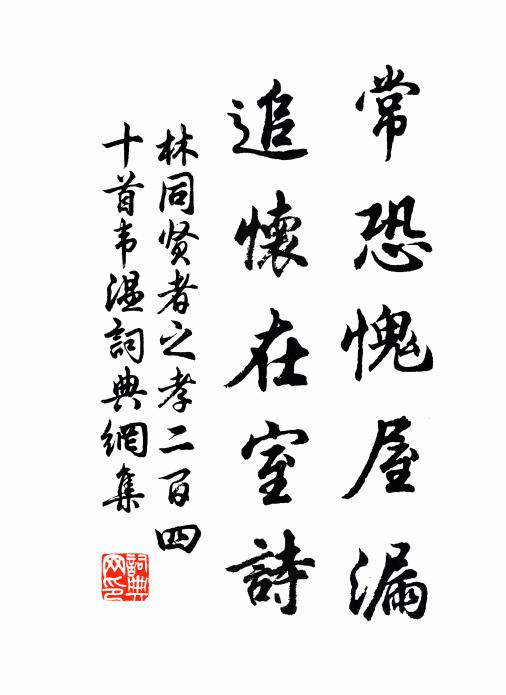 常恐愧屋漏
追懷在室詩
林同贤者之孝二百四
十首韦温詞典網集
詞典网印